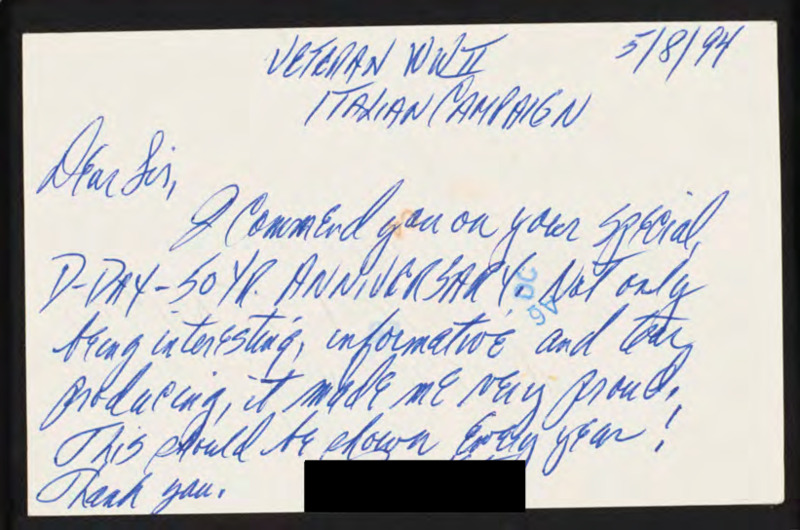 VETERAN WWII 5/8/94
ITALIAN CAMPAIGN
Dear Sir,
I Commend you on your special,
D-DAY-50 YR. ANNIVERSARY. Not only
being interesting, informative and tear
producing, it made me very proud.
This should be shown Every year!
Thank you.